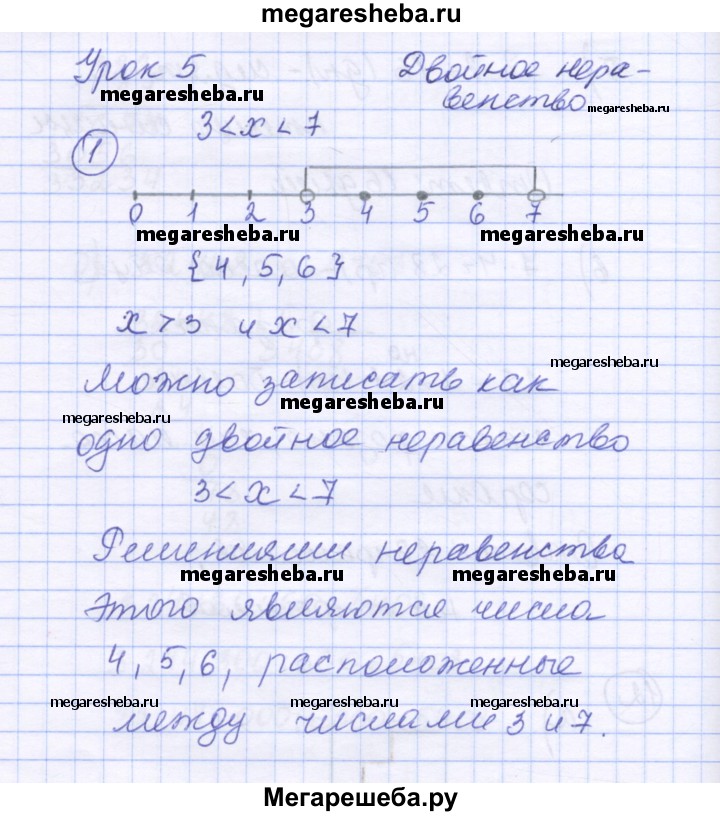 megaresheba.ru
Урок 5 Двойное нера-
megaresheba.ru венство megaresheba.ru
3 < x < 7
1
0 1 2 3 4 5 6 7
megaresheba.ru megaresheba.ru
{4, 5, 6}
x > 3 и x < 7
megaresheba.ru
Можно записать как
megaresheba.ru megaresheba.ru
одно двойное неравенство
3 < x < 7
Решениями неравенства
megaresheba.ru megaresheba.ru
этого являются числа
4, 5, 6, расположенные
megaresheba.ru megaresheba.ru megaresheba.ru
между числами 3 и 7.
Мегарешеба.ру